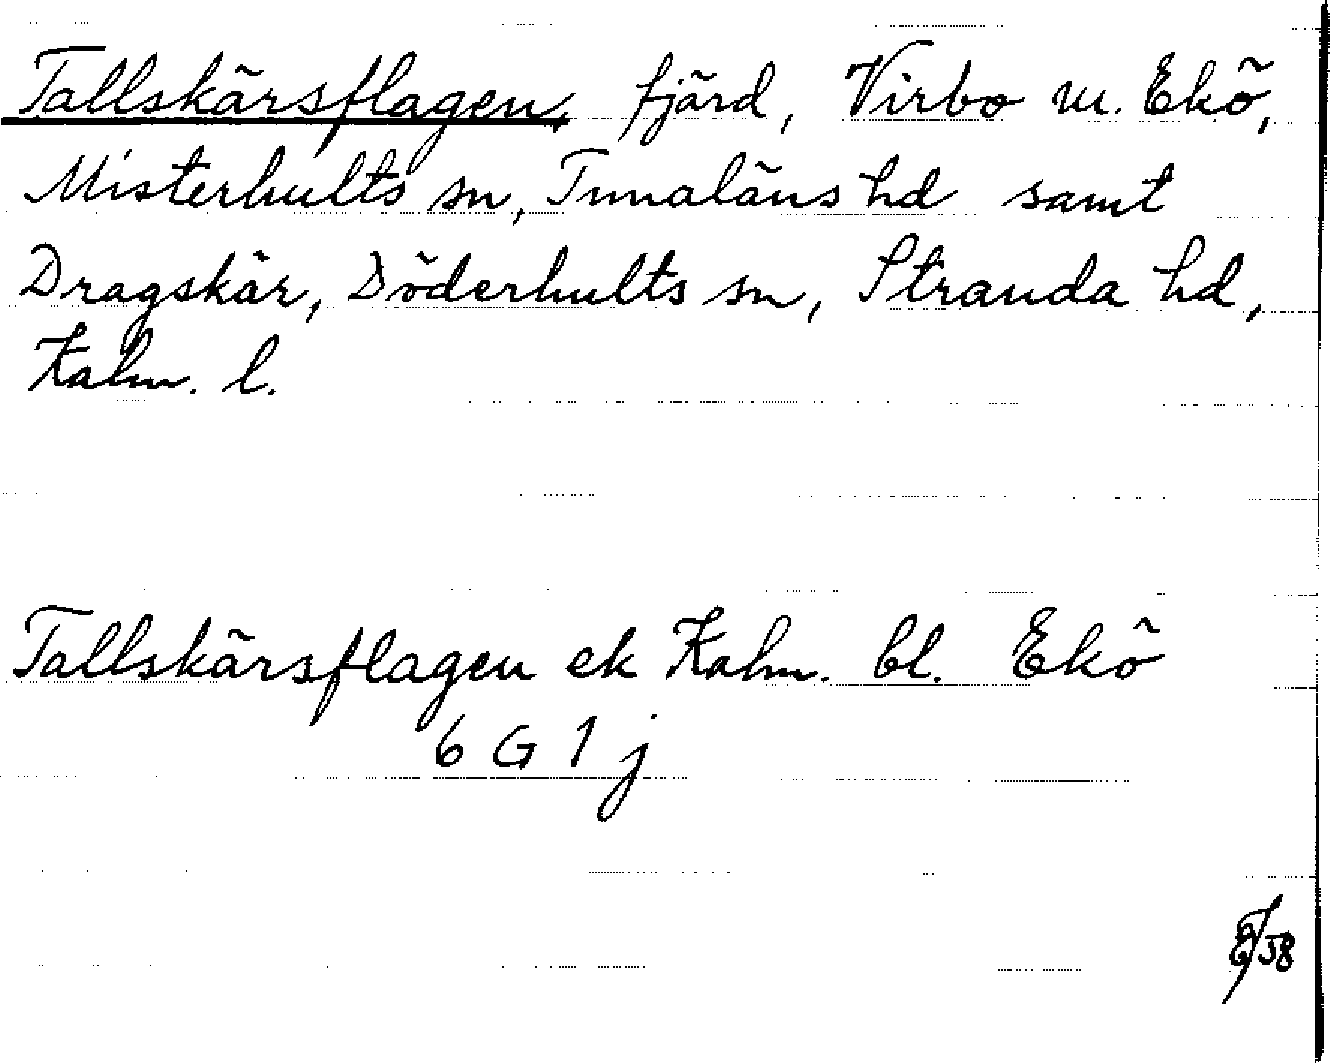 Tallskärsflagen, fjärd, Virbo m. Ekö,
Misterhults sn, Tunaläns hd samt
Dragskär, Döderhults sn, Stranda hd,
Kalm. l.
Tallskärsflagen ek Kalm. bl. Ekö
6 G 1 j
58